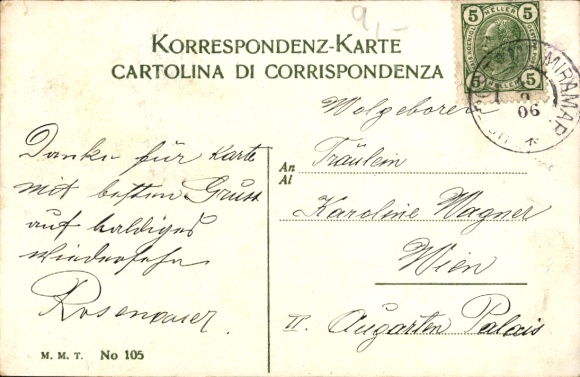 9,-
KORRESPONDENZ-KARTE
CARTOLINA DI CORRISPONDENZA
5 HELLER 5
5 HELLER 5
MIRAMAR
06
Danke für Karte
mit besten Gruss
auf baldiges
Wiedersehn
Rosenauer
An
Al
Wolgeboren
Fräulein
Karoline Wagner
Wien
II. Augarten Palais
M. M. T. No 105